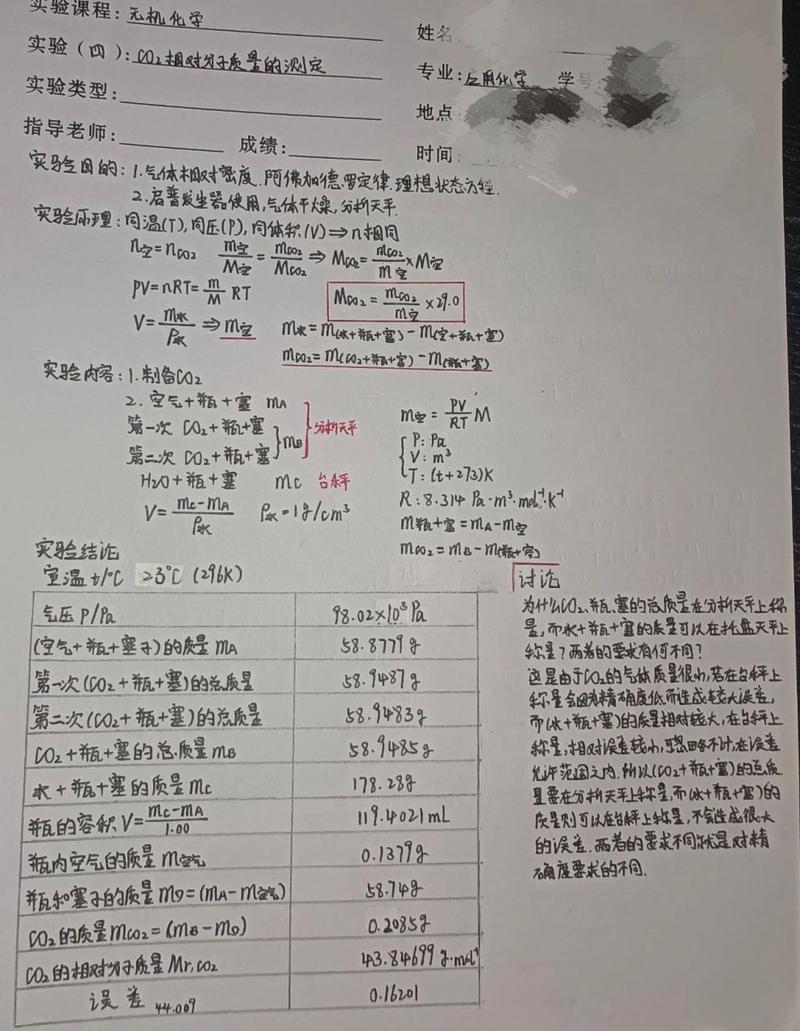 实验课程：无机化学
姓名
实验（四）：CO₂相对分子质量的测定
专业：应用化学 学号
实验类型：
地点
指导老师： 成绩：
时间：
实验目的：1.气体相对密度.阿佛加德罗定律.理想状态方程.
2.启普发生器使用，气体干燥，分析天平.
实验原理：同温(T)，同压(P)，同体积(V)⇒n相同
n空=nCO₂ m空/M空=mCO₂/MCO₂ ⇒ MCO₂=mCO₂/m空×M空
PV=nRT=m/M RT
MCO₂=mCO₂/m空×29.0
V=m水/ρ水 ⇒m空 m水=m(水+瓶+塞)-m(空+瓶+塞)
mCO₂=m(CO₂+瓶+塞)-m(瓶+塞)
实验内容：1.制备CO₂
2.空气+瓶+塞 mA
第一次 CO₂+瓶+塞
第二次 CO₂+瓶+塞
mB
分析天平
H₂O+瓶+塞 mC 台秤
V=mC-mA/ρ水 ρ水=1g/cm³
m空=PV/RT M
P：Pa
V：m³
T：(t+273)K
R：8.314 Pa·m³·mol⁻¹·K⁻¹
m瓶+塞=mA-m空
mCO₂=mB-m(瓶+塞)
实验结论
室温t/℃ 23℃ (296K)
气压P/Pa 98.02×10³Pa
(空气+瓶+塞子)的质量mA 58.8779g
第一次(CO₂+瓶+塞)的总质量 58.9487g
第二次(CO₂+瓶+塞)的总质量 58.9483g
CO₂+瓶+塞的总质量mB 58.9485g
水+瓶+塞的质量mC 178.28g
瓶的容积V=mC-mA/1.00 119.4021mL
瓶内空气的质量m空气 0.1379g
瓶和塞子的质量mD=(mA-m空气) 58.74g
CO₂的质量mCO₂=(mB-mD) 0.2085g
CO₂的相对分子质量Mr,CO₂ 43.84699g·mol⁻¹
误差 44.009 0.16201
讨论
为什么CO₂、瓶、塞的总质量在分析天平上称
量，而水+瓶+塞的质量可以在托盘天平上
称量？两者的要求有何不同？
这是由于CO₂的气体质量很小，若在台秤上
称量会因为精确度低而造成较大误差，
而(水+瓶+塞)的质量相对较大，在台秤上
称量，相对误差较小，可忽略不计，在误差
允许范围之内.所以(CO₂+瓶+塞)的总质
量要在分析天平上称量，而(水+瓶+塞)的
质量则可以在台秤上称量，不会造成很大
的误差.两者的要求不同就是对精
确度要求的不同.